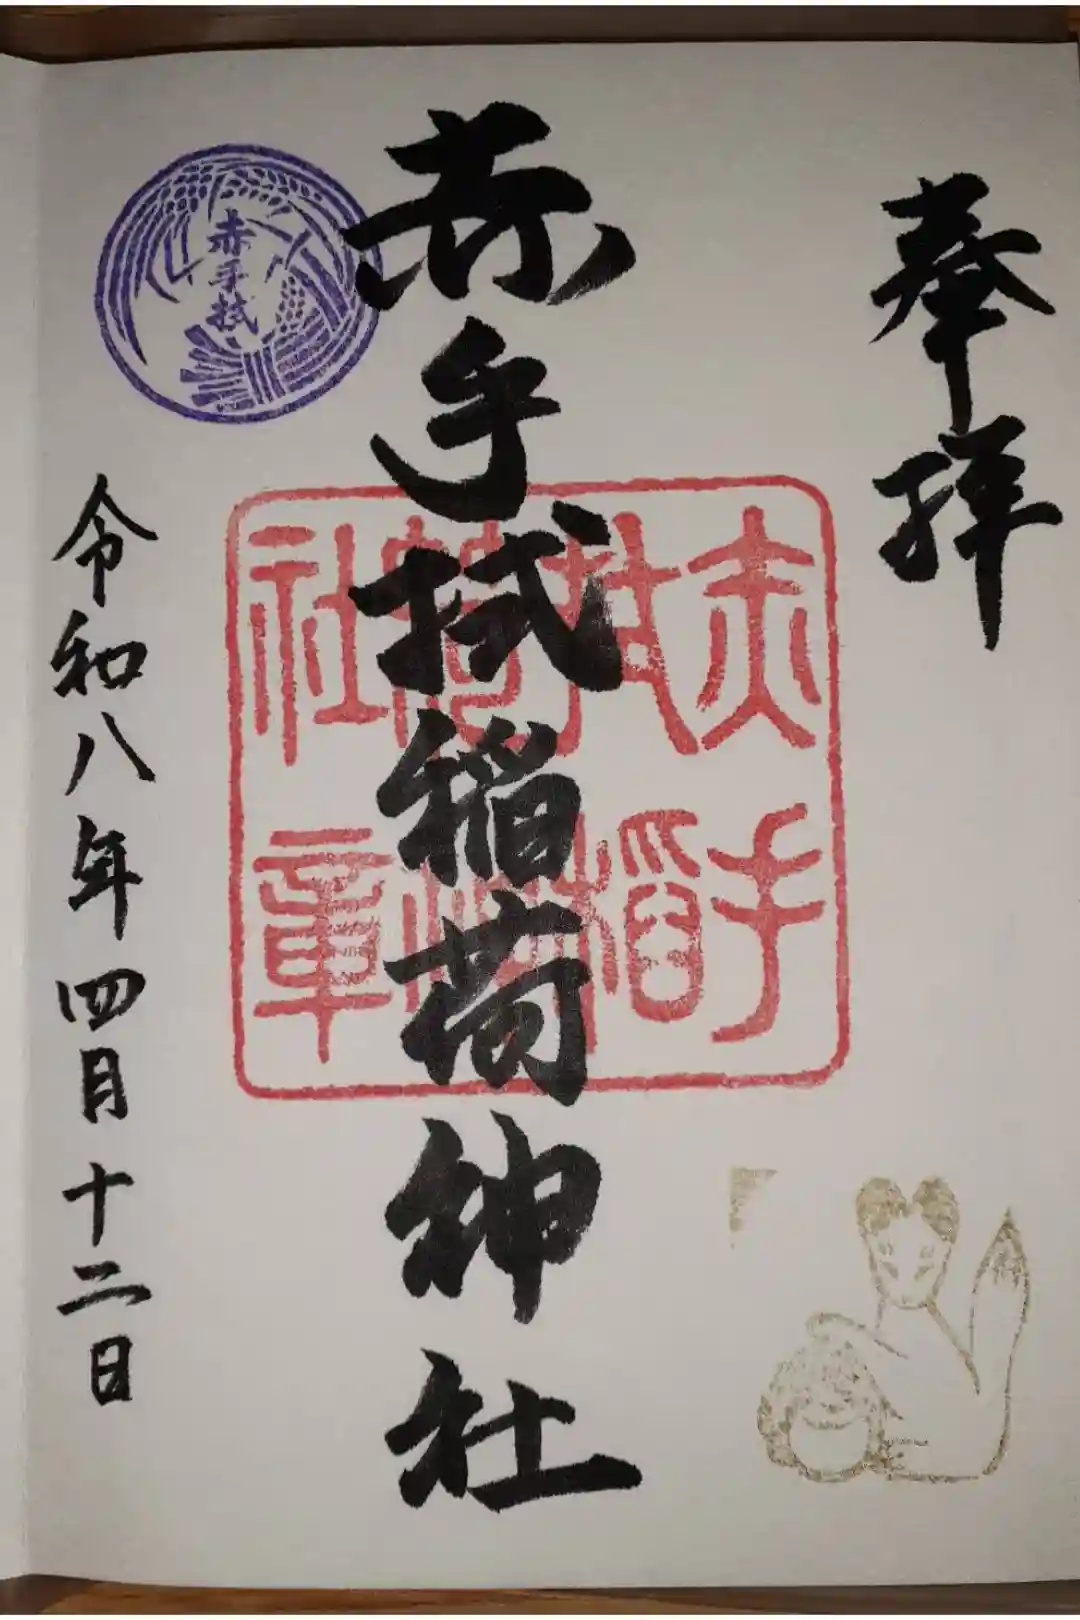 奉拝
赤手拭稲荷神社
赤手拭
赤手
拭稲
荷神
社章
令和八年四月十二日